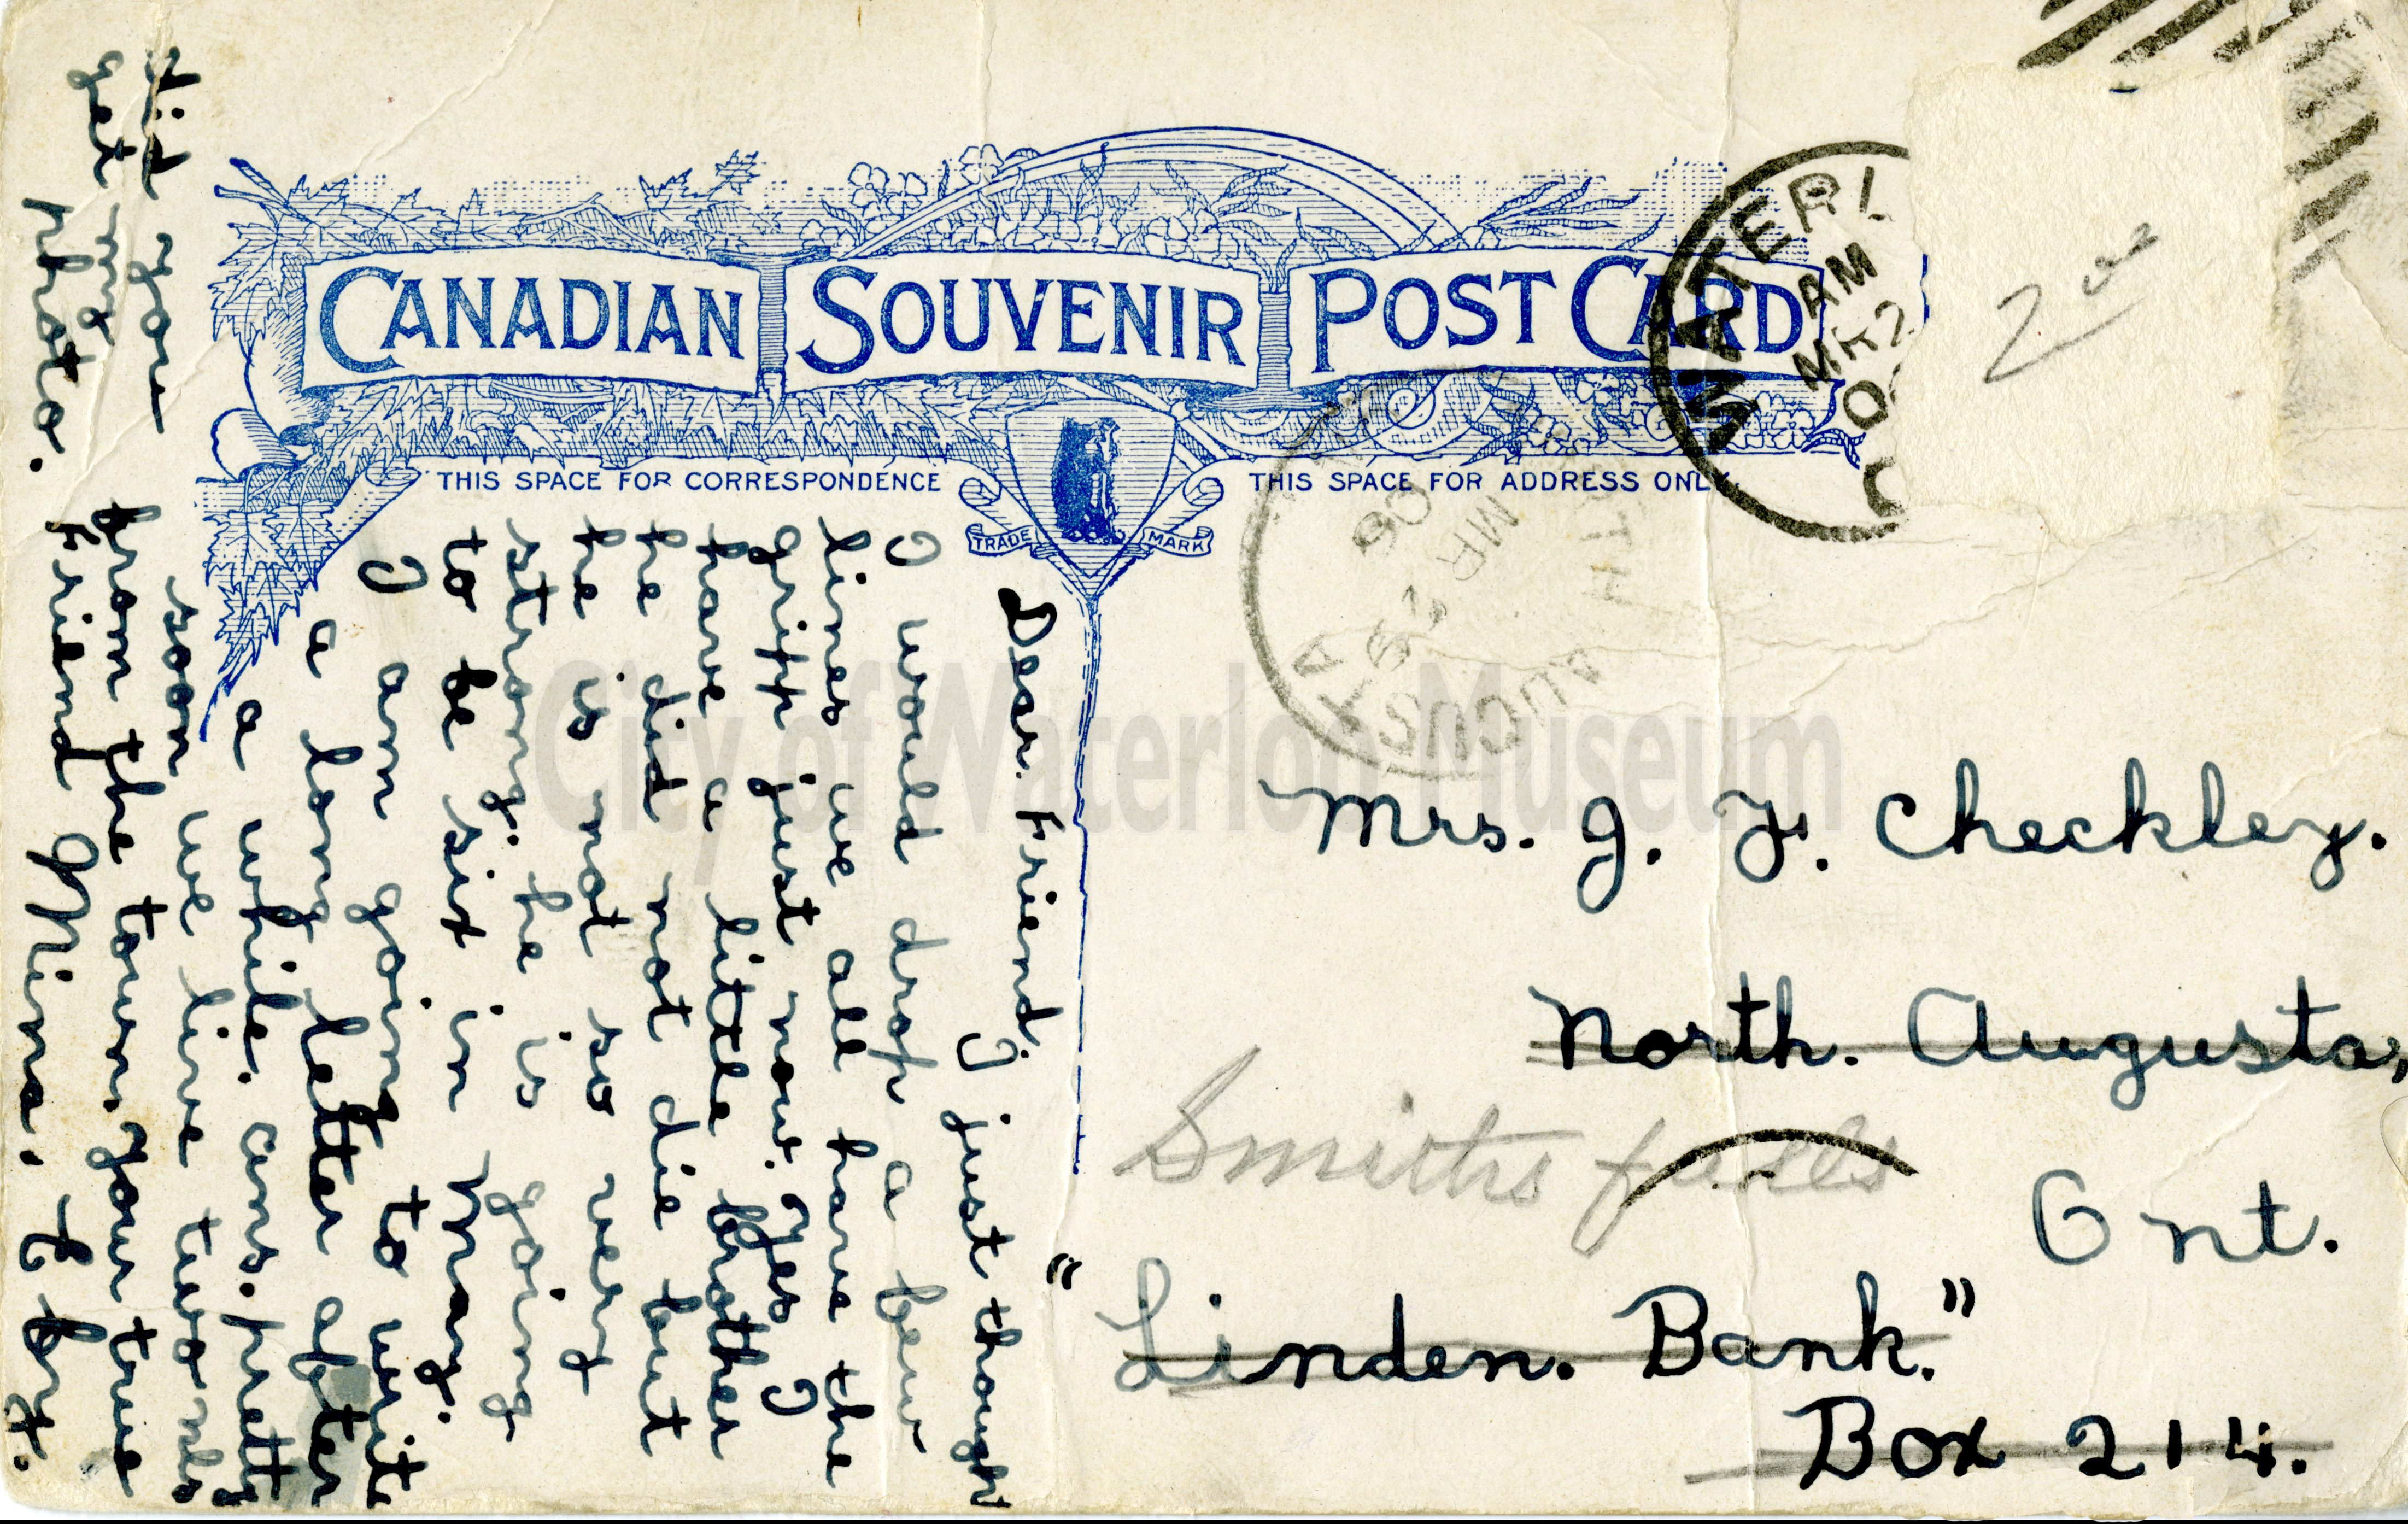 CANADIAN SOUVENIR POST CARD
THIS SPACE FOR CORRESPONDENCE
THIS SPACE FOR ADDRESS ONLY.
TRADE MARK
WATERL
AM
MR 2
TH AUGUSTA
MR
06
2
Dear. Friend; I just though
I would drop a few
lines we all have the
gripp just now. Yes I
have a little brother
he did not die but
he is not so very
strong. he is going
to be six in may.
I am going to write
a long letter after
a while. ans. pretty
soon we live two mls
from the town. your true
Friend Mina.
did you
get my
photo.
Mrs. J. F. Checkley.
North. Augusta,
Smiths falls
Ont.
"Linden. Bank."
Box 214.
City of Waterloo Museum